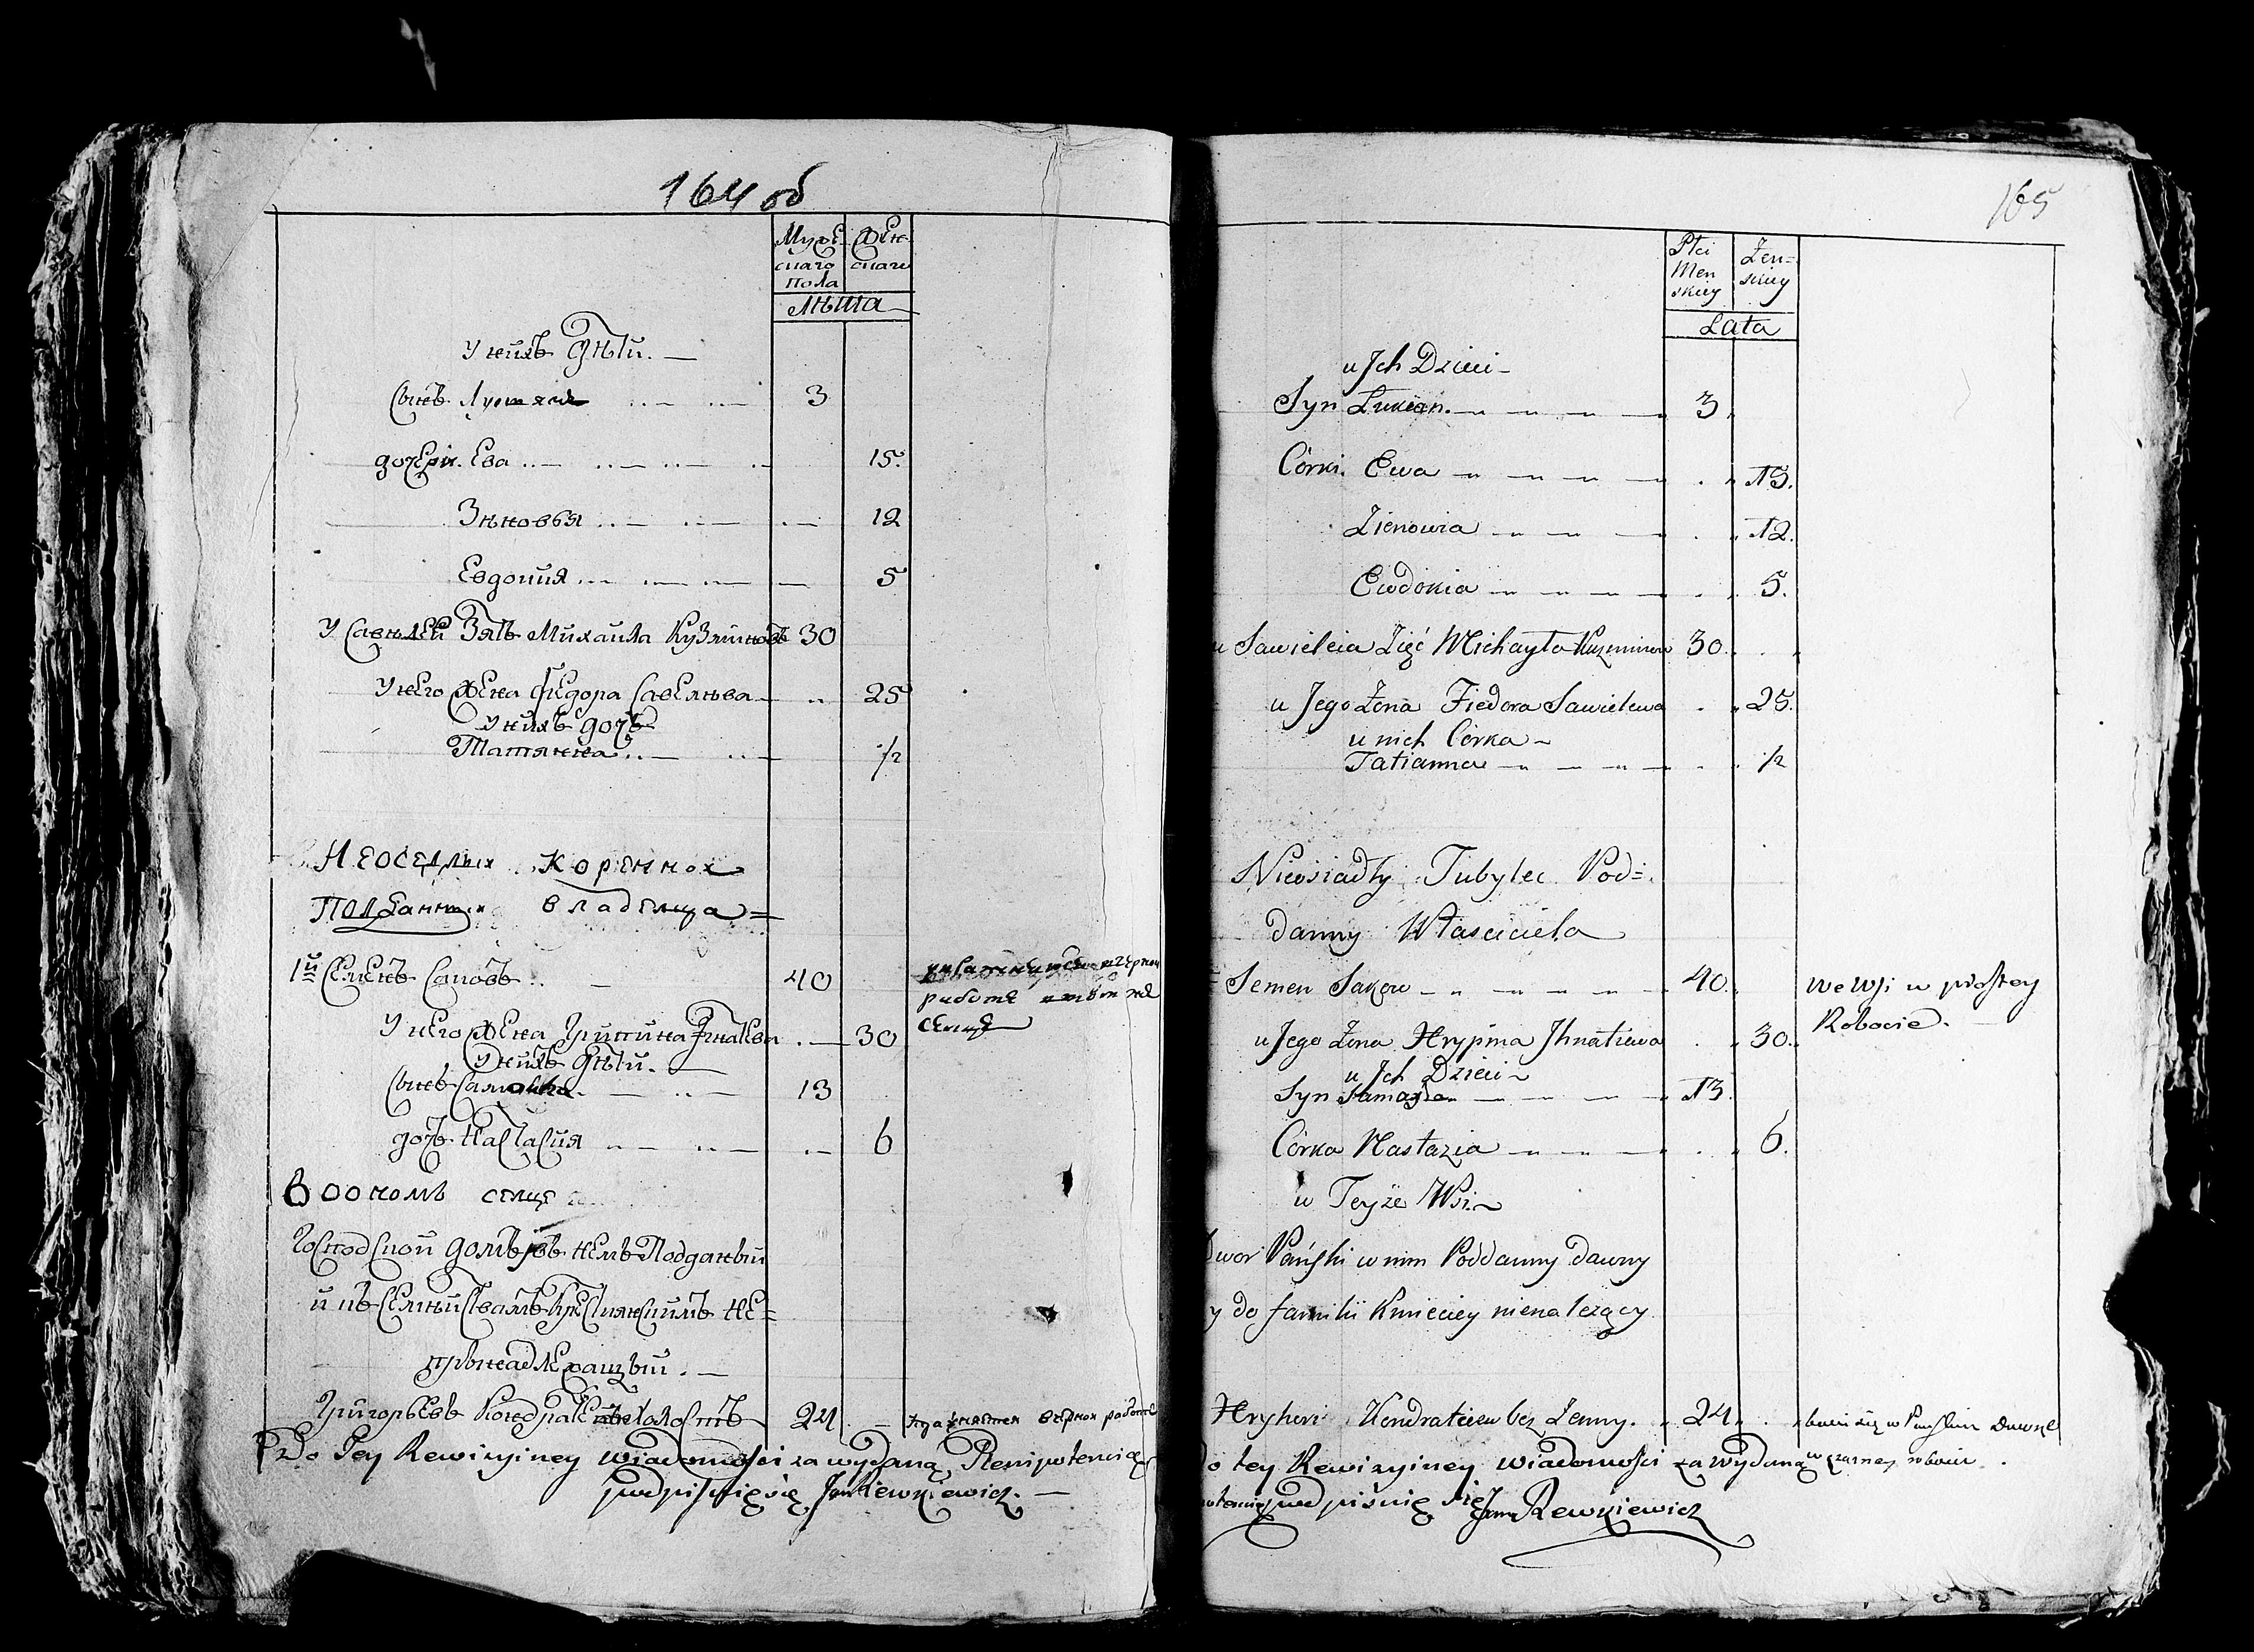 164 об
Мужe- Жен-
скаго скаго
пола
лѣта
У нихъ дѣти. —
Сынъ 3
дочери. Ева 15.
Зѣновья 12
Евдокия 5
У Савѣлей Зять Михайла Кузминовъ 30
У него жена Федора Савелѣва 25
У нихъ дочь
Татянна 1/2
Неоселыи коренной
Подданныи владелца =
1й Семенъ Саковъ 40
работе
селце
У него жена Грипина Игнатева 30
У нихъ дѣти.
Сынъ 13
дочь Настасия 6
В ономъ селце
Господской домъ въ немъ Подданый
и къ Семействамъ Крестианскимъ не=
принадлежащый. —
Григорьевъ Кондратей холостъ 24 работе
Do Tey Rewizyiney wiadomości za wydaną Plenipotencią
podpisuię się Jan Rewkiewicz. —
165
Płci Żeń=
Men skiey
skiey
Lata
u Jch Dzieci —
Syn Łukian. 3
Córki. Ewa 15.
Zienowia 12.
Ewdokia 5.
u Sawieleia Zięć Michayło Kuzminow 30.
u Jego Żona Fiedora Sawielewa 25.
u nich Córka —
Tatianna 1/2
Nieosiadły Tubylec Pod=
danny Właściciela
Semen Sakow 40. we wsi w prostey
Robocie.
u Jego Żona Hrypina Jhnatiewa 30.
u Jch Dzieci —
Syn 13
Córka Nastazia 6.
w Teyże Wsi. —
Dwor Pański w nim Poddanny dawny
y do familii Kmieciey nienależący
Hryhori Kondratiew bez Żenny. 24 bawi się w Pańskim Dworze
w czarney robocie.
Do tey Rewizyiney wiadomości za wydaną
podpisuię się Jan Rewkiewicz